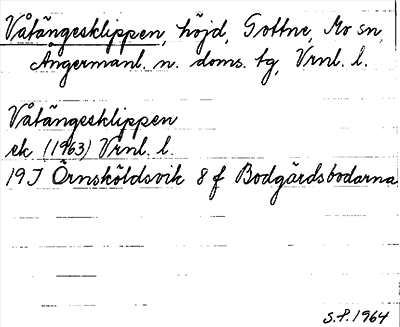 Våtängesklippen, höjd, Gottne, Mo sn,
Ångermanl. n. doms. tg, Vrnl. l.
Våtängesklippen
ek (1963) Vrnl. l.
19J Örnsköldsvik 8 f Bodgärdsbodarna
S.F. 1964